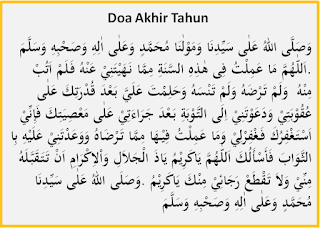 Doa Akhir Tahun
وَصَلَّى اللهُ عَلَى سَيِّدِنَا وَمَوْلٰنَا مُحَمَّدٍ وَعَلَى اٰلِهِ وَصَحْبِهِ وَسَلَّمَ
.اَللّٰهُمَّ مَا عَمِلْتُ فِى هٰذِهِ السَّنَةِ مِمَّا نَهَيْتَنِيْ عَنْهُ فَلَمْ اَتُبْ
مِنْهُ وَلَمْ تَرْضَهُ وَلَمْ تَنْسَهُ وَحَلِمْتَ عَلَيَّ بَعْدَ قُدْرَتِكَ عَلَى
عُقُوْبَتِيْ وَدَعَوْتَنِيْ اِلَى التَّوْبَةِ بَعْدَ جَرَاءَتِيْ عَلَى مَعْصِيَتِكَ فَاِنِّيْ
اَسْتَغْفِرُكَ فَغْفِرْلِيْ وَمَا عَمِلْتُ فِيْهَا مِمَّا تَرْضَاهُ وَوَعَدْتَنِيْ عَلَيْهِ بِا
لثَّوَابَ فَأَسْأَلُكَ اَللّٰهُمَّ يَاكَرِيْمُ يَاذَ الْجَلَالِ وَاْلاِكْرَامِ اَنْ تَتَقَبَّلَهُ
مِنِّيْ وَلاَ تَقْطَعْ رَجَائِيْ مِنْكَ يَاكَرِيْمُ .وَصَلَى اللهُ عَلَى سَيِّدِنَا
مُحَمَّدٍ وَعَلَى اٰلِهِ وَصَحْبِهِ وَسَلَّمَ